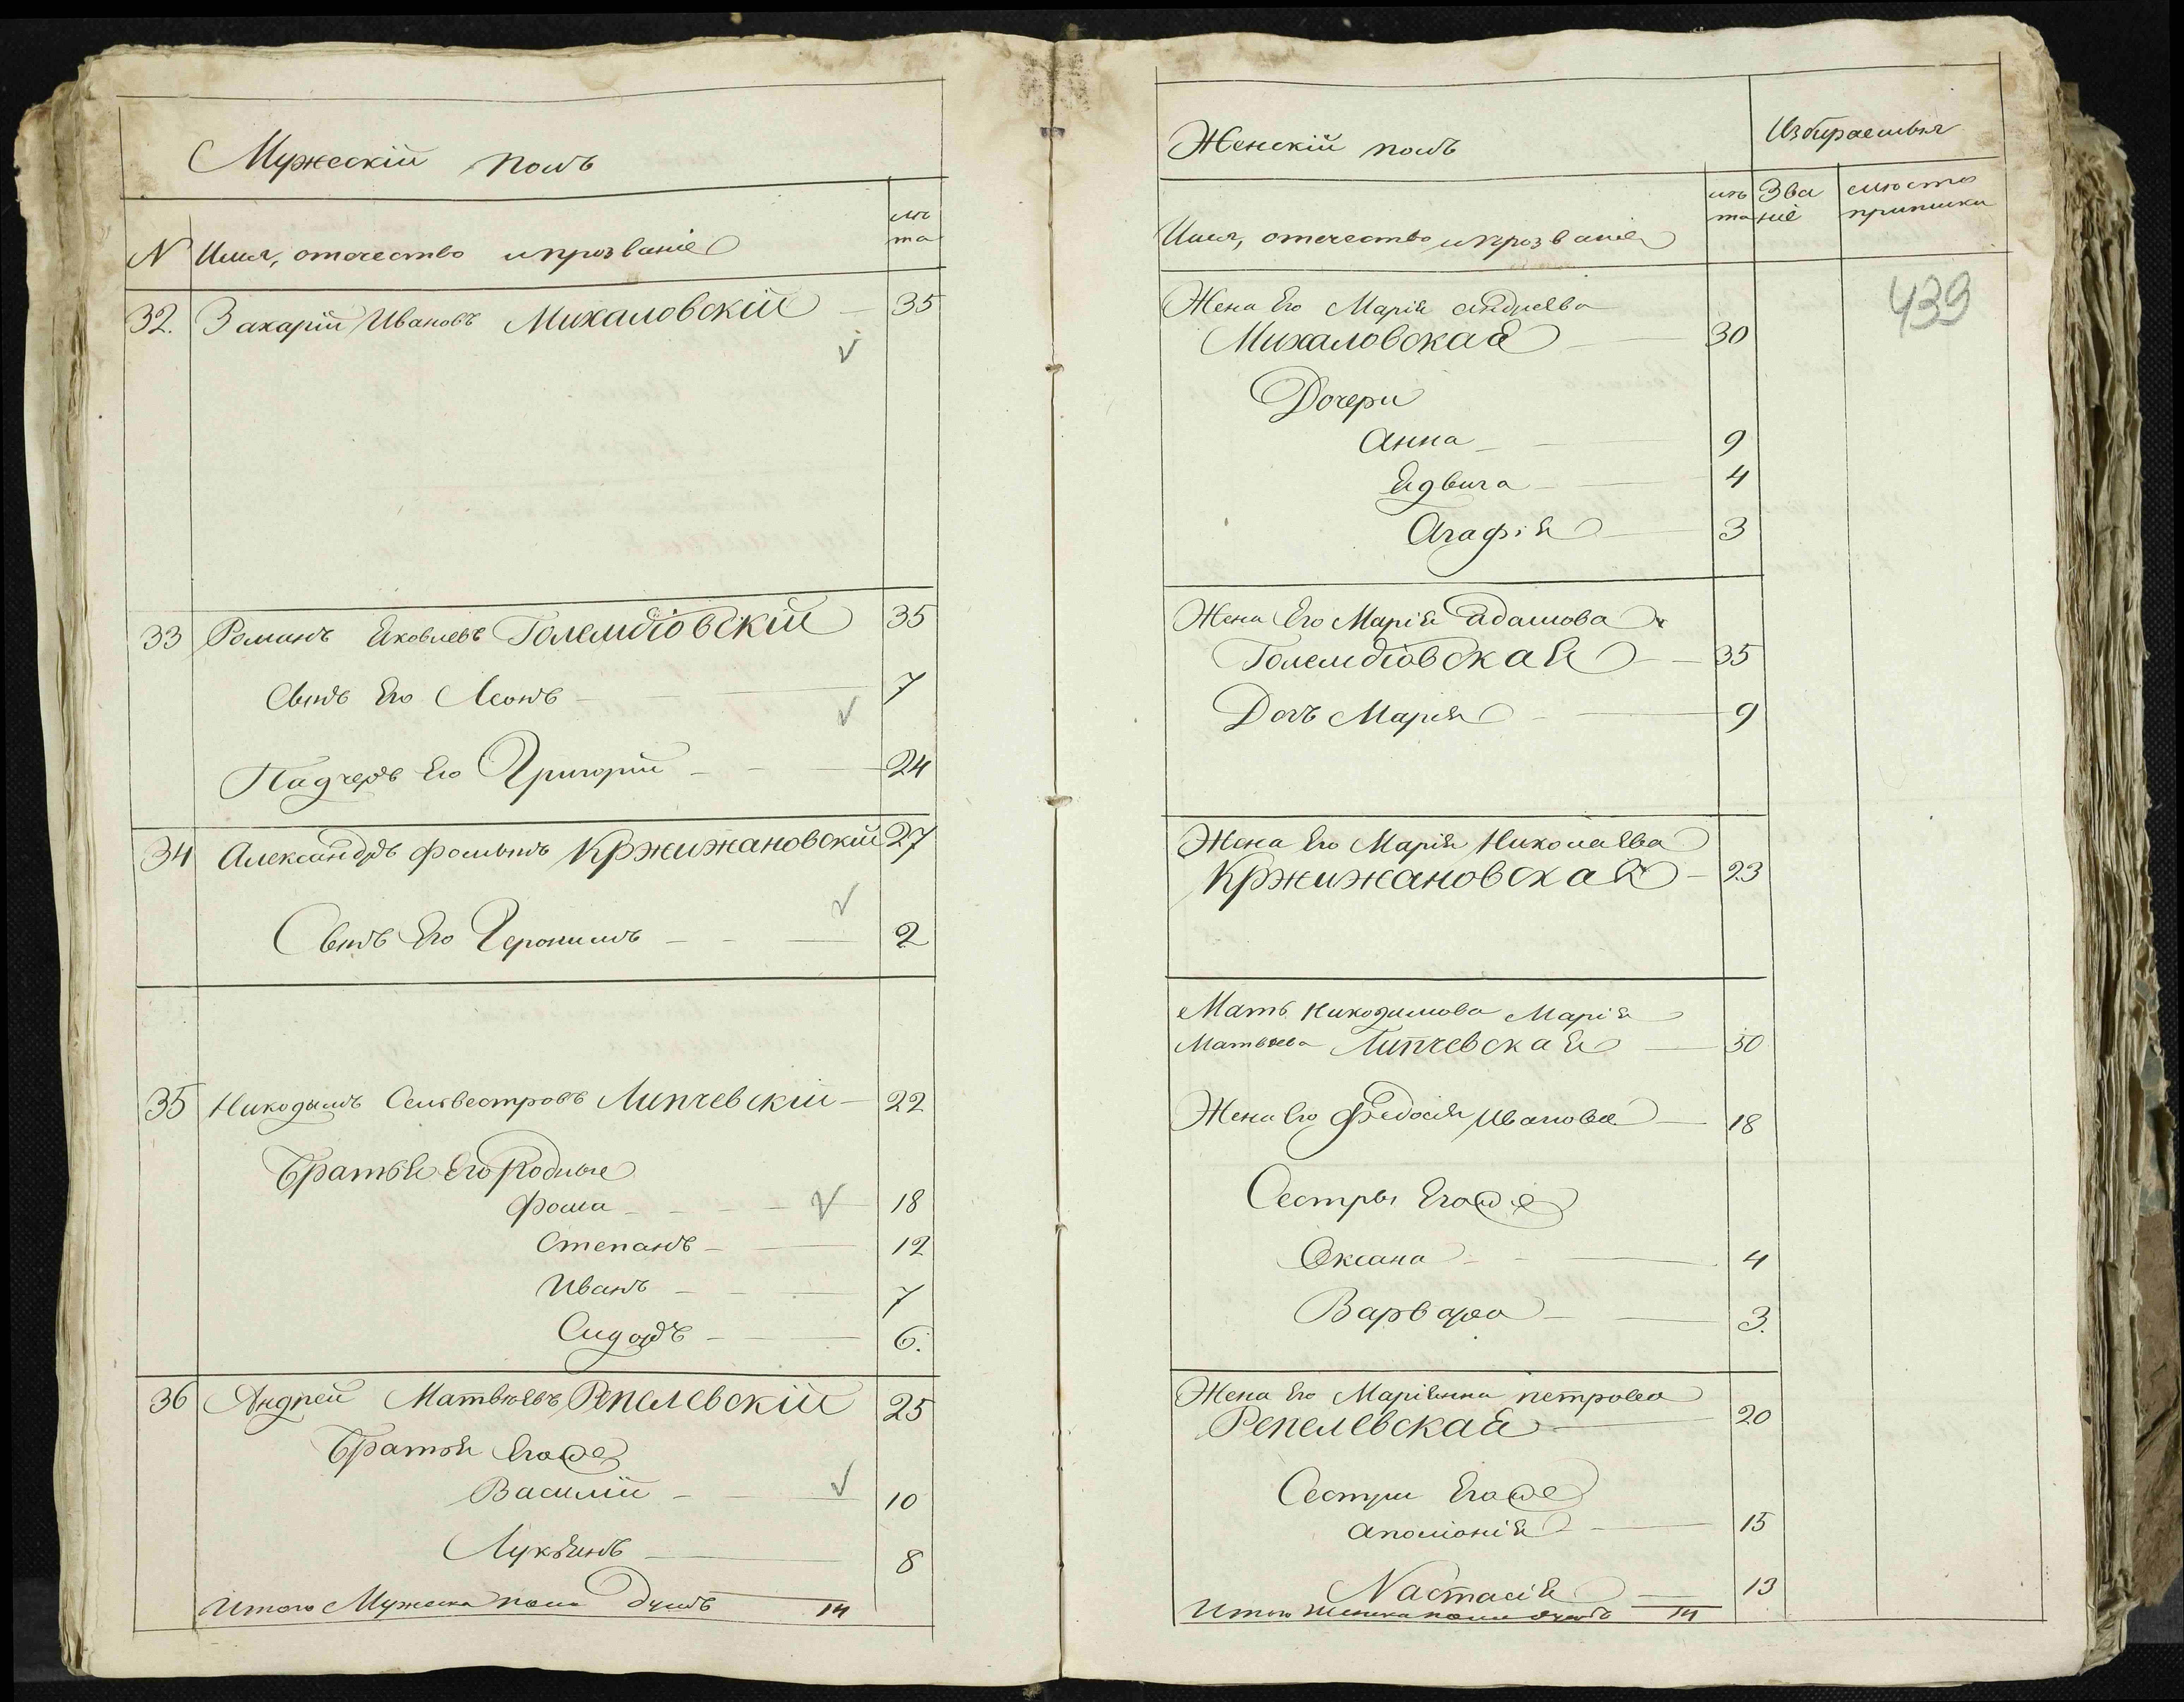 Мужескій полъ
N Имя, отечество и прозваніе лѣта
32. Захарій Ивановъ Михаловскій 35
33 Романъ Яковлевъ Голембіовскій 35
Сынъ Его Леонъ 7
Падчеръ Его Григорій 24
34 Александръ Фомынъ Кржижановскій 27
Сынъ Его Геронимъ 2
35 Никодымъ Селвестровъ Липчевскій 22
Братья Его Родные
Фома 18
Степанъ 12
Иванъ 7
Сидоръ 6.
36 Андрей Матвѣевъ Репелевскій 25
Братья Егоже
Василій 10
Лукьянъ 8
Итого Мужеска пола Душъ 14
Женскій полъ Избираемыя
Имя, отечество и прозваніе лѣта Званіе мѣсто приписки
439
Жена Его Марія Андреева
Михаловская 30
Дочери
Анна 9
Ядвига 4
Агафія 3
Жена Его Марія Адамова
Голембіовская 35
Дочъ Марія 9
Жена Его Марія Николаева
Кржижановская 23
Мать Никодимова Марія
Матвеева Липчевская 50
Жена Его Федосія Иванова 18
Сестры Егоже
Оксана 4
Варвара 3.
Жена Его Маріянна Петрова
Репелевская 20
Сестри Егоже
Аполіонія 15
Настасія 13
Итого женска пола душъ 14